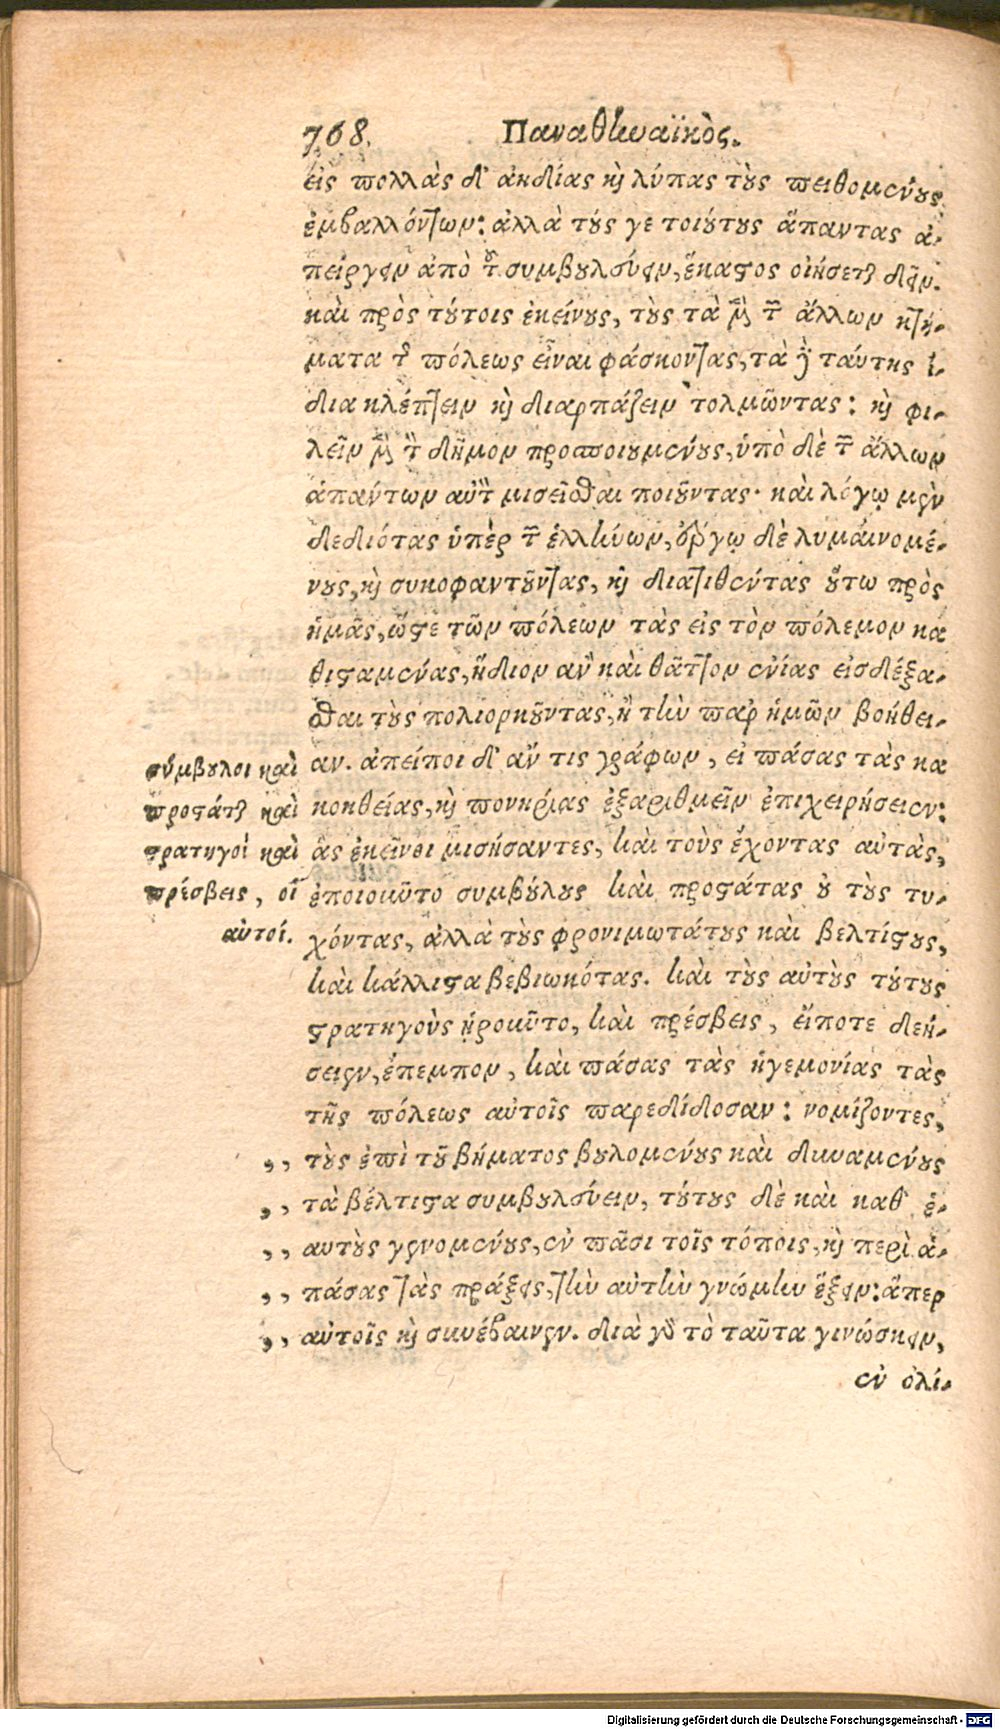 768. Παναθηναϊκὸς.
εἰς πολλὰς δ' ἀηδίας καὶ λύπας τοὺς πειθομένους
ἐμβαλλόντων: ἀλλὰ τούς γε τοιούτους ἅπαντας ἀ-
πείργειν ἀπὸ τοῦ συμβουλεύειν, ἕκαστος οἰήσεται δεῖν.
καὶ πρὸς τούτοις ἐκείνους, τοὺς τὰ μὲν τῶν ἄλλων κτή-
ματα τῆς πόλεως εἶναι φάσκοντας, τὰ δὲ ταύτης ἴ-
δια κλέπτειν καὶ διαρπάζειν τολμῶντας: καὶ φι-
λεῖν μὲν τὸν δῆμον προσποιουμένους, ὑπὸ δὲ τῶν ἄλλων
ἁπάντων αὐτὸν μισεῖσθαι ποιοῦντας· καὶ λόγῳ μὲν
δεδιότας ὑπὲρ τῶν ἑλλήνων, ἔργῳ δὲ λυμαινομέ-
νους, καὶ συκοφαντοῦντας, καὶ διατιθέντας οὕτω πρὸς
ἡμᾶς, ὥστε τῶν πόλεων τὰς εἰς τὸν πόλεμον κα
θισταμένας, ἥδιον ἂν καὶ θᾶττον ἐνίας εἰσδέξα-
σθαι τοὺς πολιορκοῦντας, ἢ τὴν παρ' ἡμῶν βοήθει-
αν. ἀπείποι δ' ἄν τις γράφων, εἰ πάσας τὰς κα
κοηθείας, καὶ πονηρίας ἐξαριθμεῖν ἐπιχειρήσειεν:
ἃς ἐκεῖνοι μισήσαντες, καὶ τοὺς ἔχοντας αὐτὰς,
ἐποιοῦντο συμβούλους καὶ προστάτας οὐ τοὺς τυ-
χόντας, ἀλλὰ τοὺς φρονιμωτάτους καὶ βελτίστους,
καὶ κάλλιστα βεβιωκότας. καὶ τοὺς αὐτοὺς τούτους
στρατηγοὺς ᾑροῦντο, καὶ πρέσβεις, εἴποτε δεή-
σειεν, ἔπεμπον, καὶ πάσας τὰς ἡγεμονίας τὰς
τῆς πόλεως αὐτοῖς παρεδίδοσαν: νομίζοντες,
,, τοὺς ἐπὶ τοῦ βήματος βουλομένους καὶ δυναμένους
,, τὰ βέλτιστα συμβουλεύειν, τούτους δὲ καὶ καθ' ἑ-
,, αυτοὺς γενομένους, ἐν πᾶσι τοῖς τόποις, καὶ περὶ ἁ-
,, πάσας τὰς πράξεις, τὴν αὐτὴν γνώμην ἕξειν: ἅπερ
,, αὐτοῖς καὶ συνέβαινεν. διὰ γὰρ τὸ ταῦτα γινώσκειν,
ἐν ὀλί-
σύμβουλοι καὶ
προστάται καὶ
στρατηγοὶ καὶ
πρέσβεις, οἱ
αὐτοί.